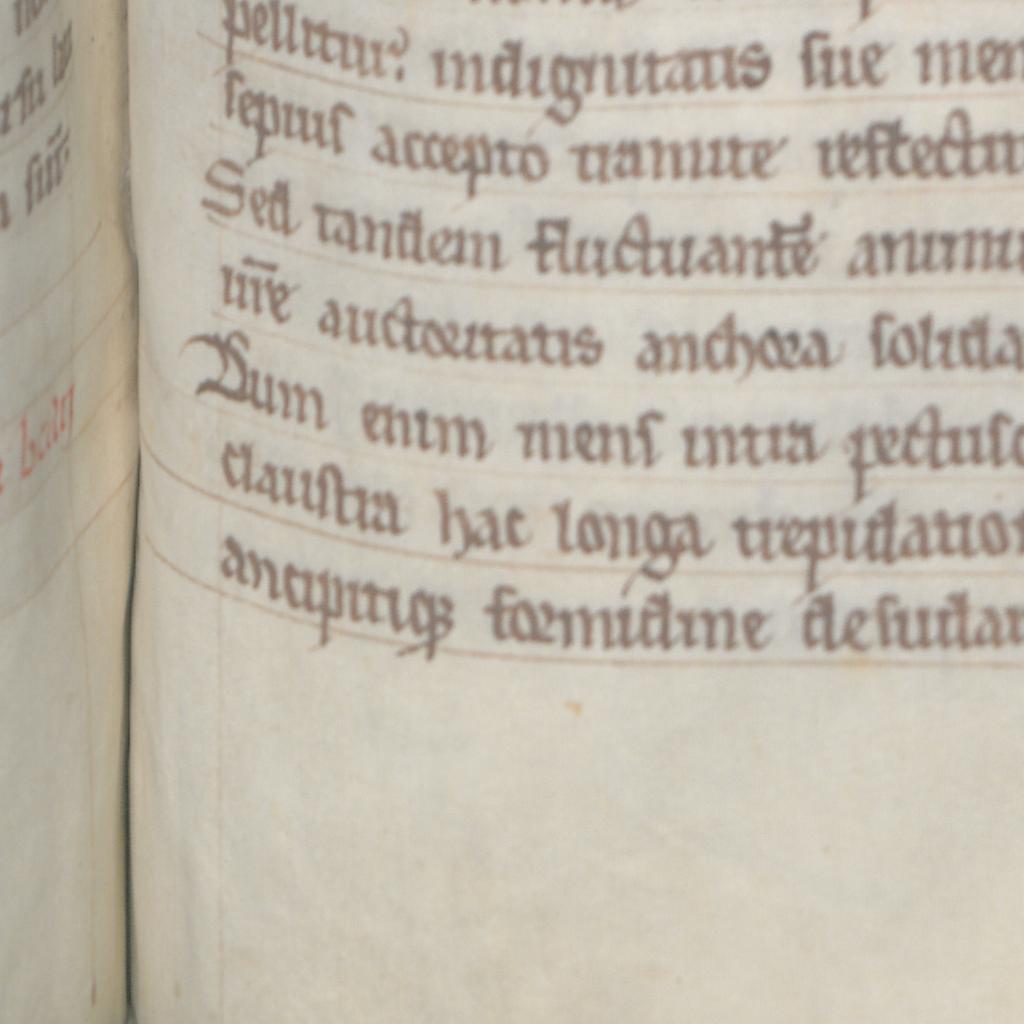 pellitur? indignitatis sue men
sepius accepto tramite reflectit
Sed tandem fluctuantē animu
ur̄e auctoritatis anchora solida
Dum enim mens intra pectusc
claustra hac longa trepidation
ancipitiq; formidine desudar